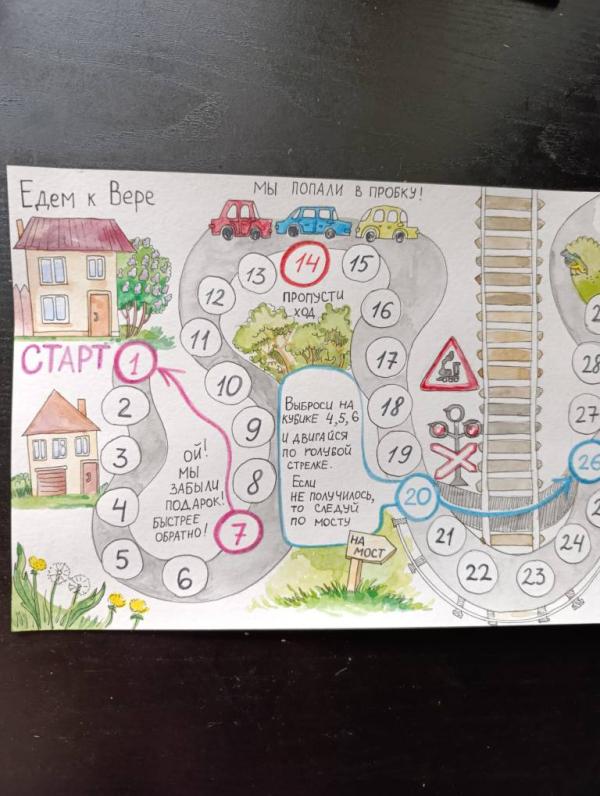 Едем к Вере
Мы попали в пробку!
СТАРТ
1
2
3
4
5
6
7
8
9
10
11
12
13
14
15
16
17
18
19
20
21
22
23
24
26
27
28
Ой!
Мы
забыли
подарок!
Быстрее
обратно!
Пропусти
ход
Выброси на
кубике 4,5,6
и двигайся
по голубой
стрелке.
Если
не получилось,
то следуй
по мосту
На
мост